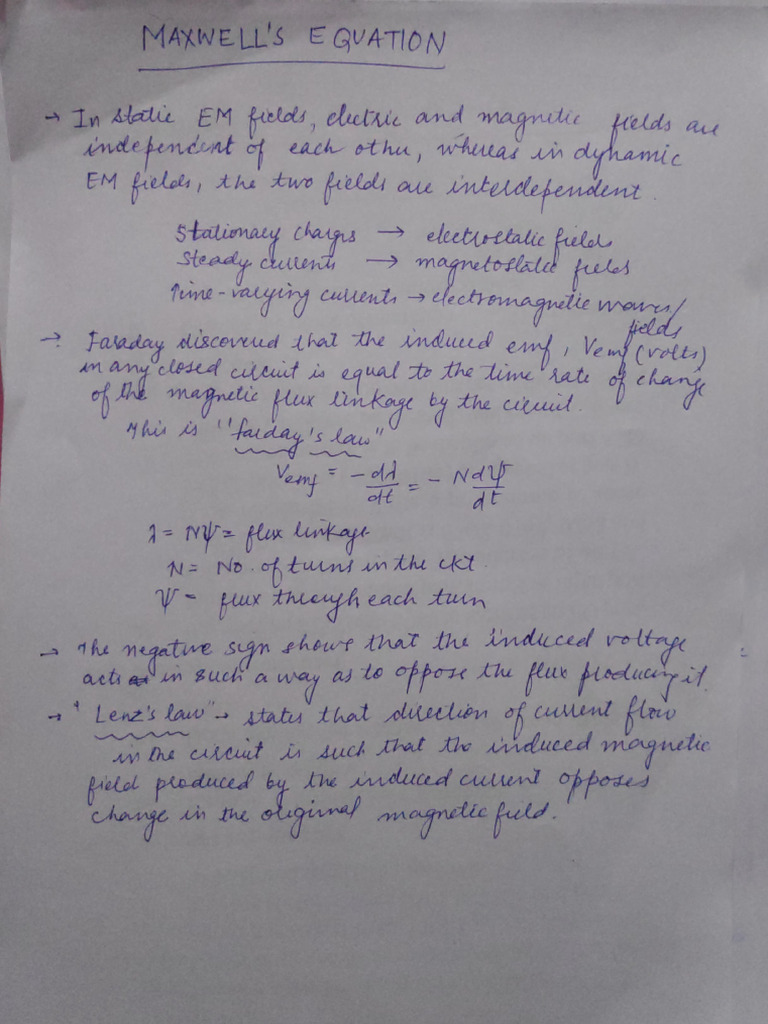 MAXWELL'S EQUATION
→ In static EM fields, electric and magnetic fields are
independent of each other, whereas in dynamic
EM fields, the two fields are interdependent.
Stationary charges → electrostatic fields
Steady currents → magnetostatic fields
Time-varying currents → electromagnetic waves/
fields
→ Faraday discovered that the induced emf, Vemf (volts)
in any closed circuit is equal to the time rate of change
of the magnetic flux linkage by the circuit.
This is "farday's law"
Vemf = -dλ/dt = - Ndψ/dt
λ = Nψ = flux linkage
N = No. of turns in the ckt.
ψ = flux through each turn
→ The negative sign shows that the induced voltage
acts in such a way as to oppose the flux producing it.
→ "Lenz's law" → states that direction of current flow
in the circuit is such that the induced magnetic
field produced by the induced current opposes
change in the original magnetic field.